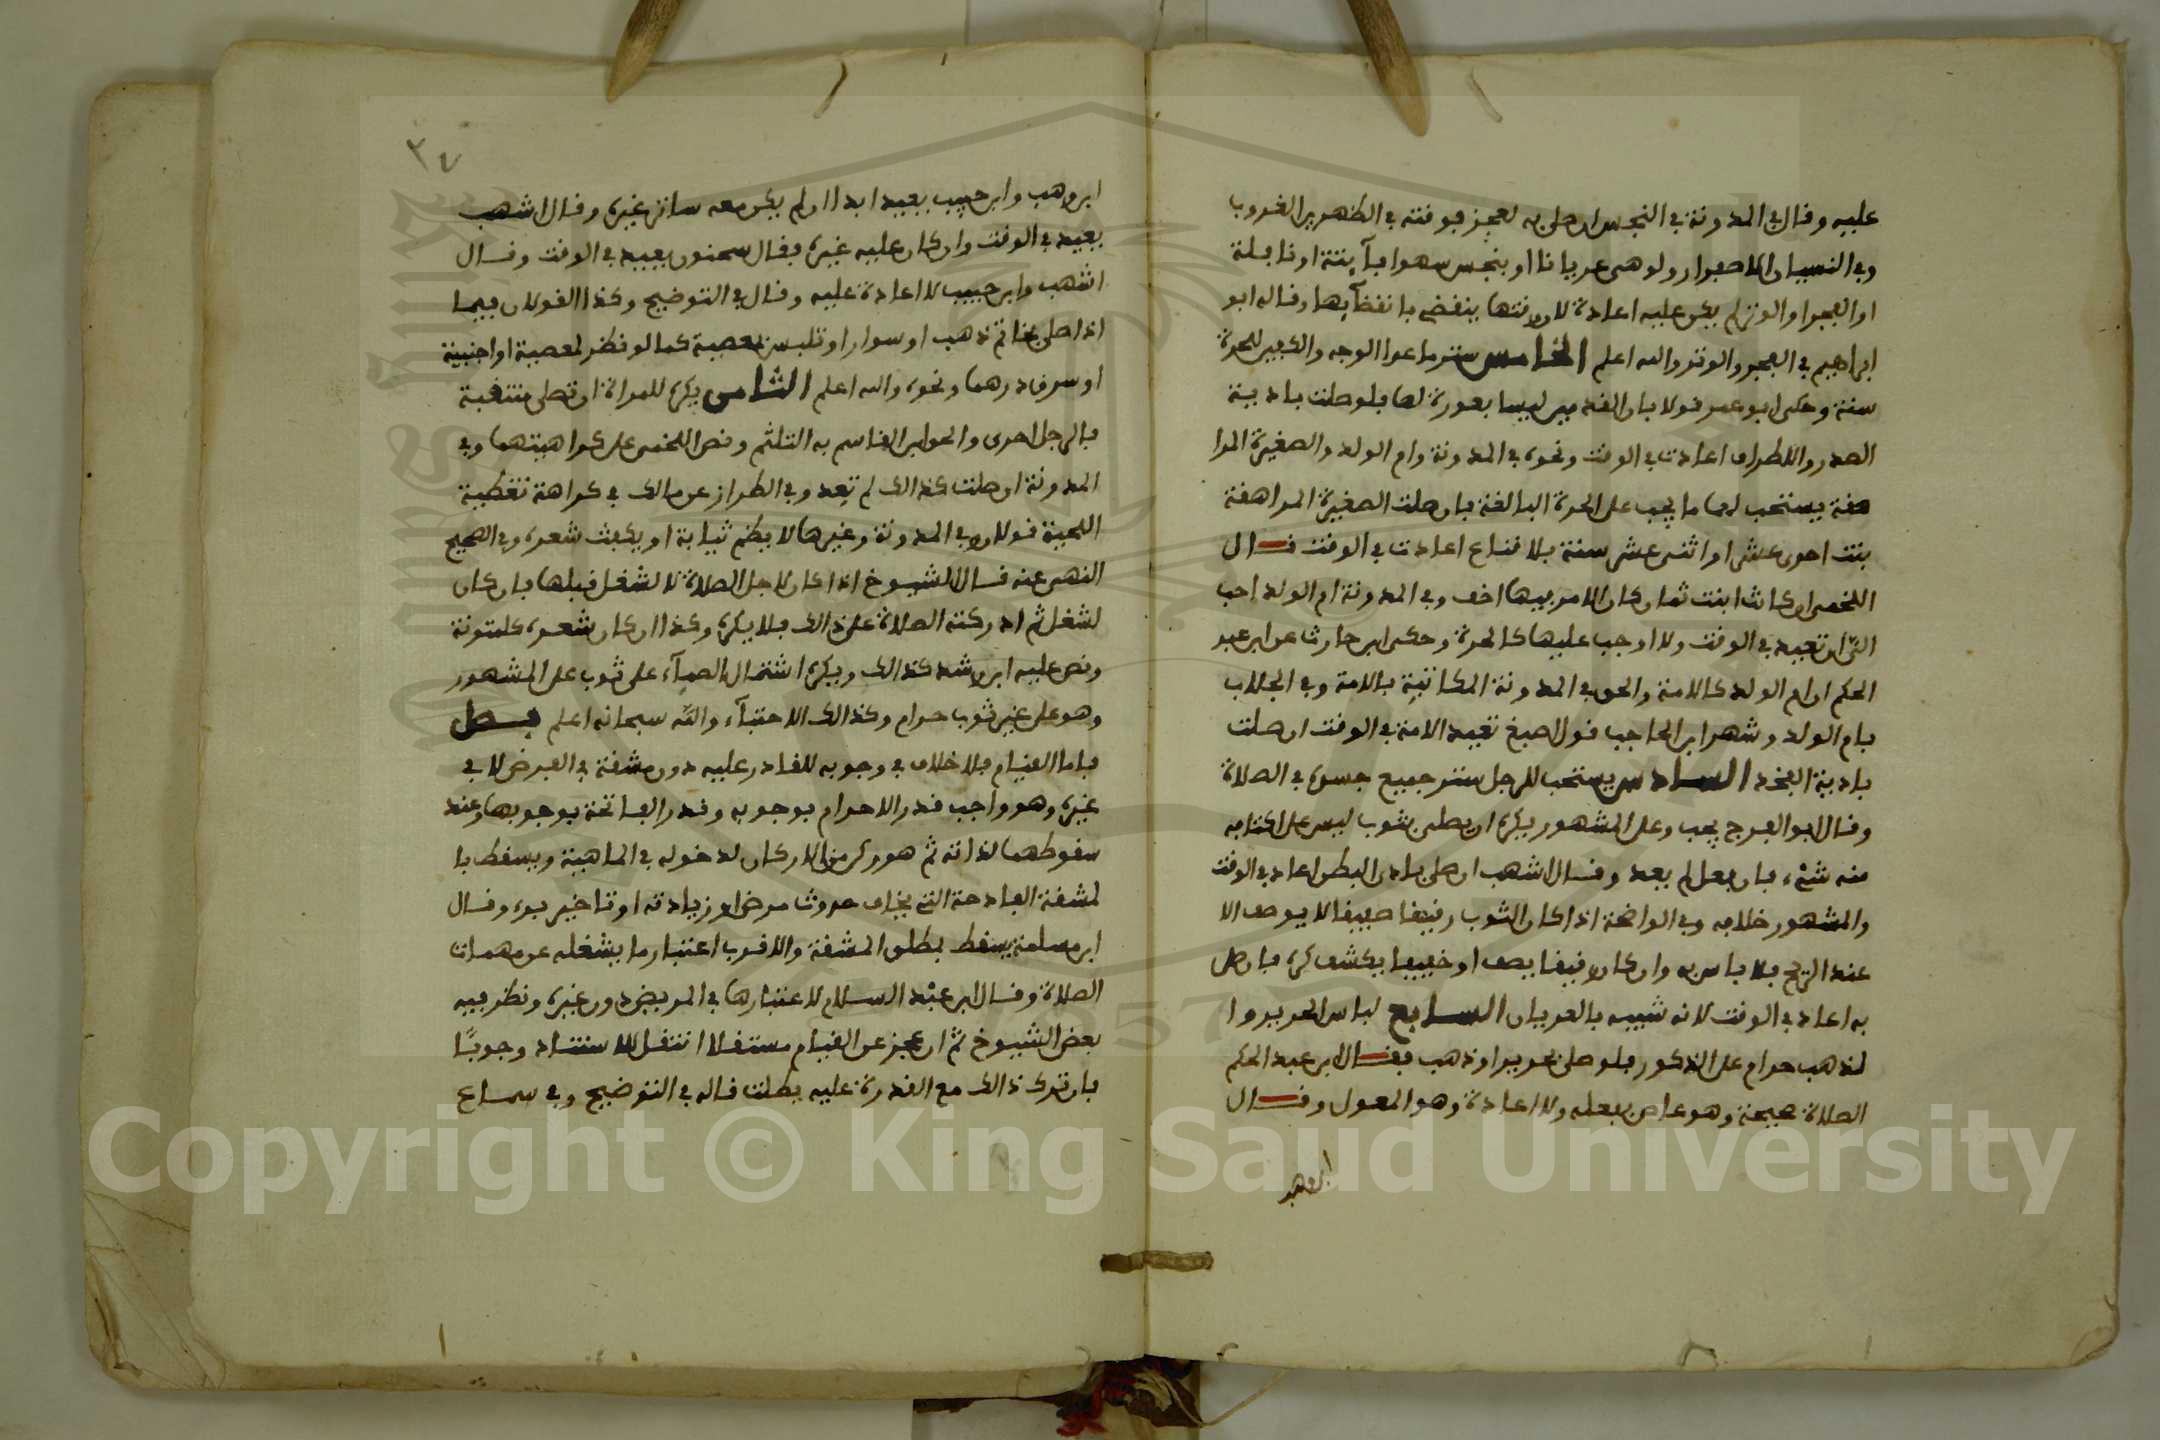 عليه وقال في المدونة في النجس ان صلى به لعجز فوقته في الظهرين الغروب
وفي النسيان الاصفرار ولو صلى عريانا او بنجس سهوا فآيتة او نافلة
او الفجر او الوتر لم يكن عليه اعادة لان وقتها ينقضي بانقضآيها وقاله ابو
ابراهيم في الفجر والوتر والله اعلم الخامس ستر ما عدا الوجه والكفين للحرة
سنة وحكى ابو عمر قولا بان القدمين ليسا بعورة لها فلو صلت بادية
الصدر والاطراف اعادت في الوقت ونحوه في المدونة وام الولد والصغيرة المرا
هقة يستحب لهما ما يجب على الحرة البالغة فان صلت الصغيرة المراهقة
بنت احدى عشر او اثنى عشر سنة بلا قناع اعادت في الوقت قال
اللخمي ان كانت ابنت ثمان كان الامر فيها اخف وفي المدونة ام الولد احب
الي ان تعيد في الوقت ولا اوجب عليها كالحرة وحكى ابن حارث عن ابن عبد
الحكم ان ام الولد كالامة والحق في المدونة المكاتبة بالامة وفي الجلاب
بام الولد وشهر ابن الحاجب قول اصبغ تعيد الامة في الوقت ان صلت
بادية الفخد السادس يستحب للرجل ستر جميع جسده في الصلاة
وقال ابو الفرج يجب وعلى المشهور يكره ان يصلي بثوب ليس على اكتافه
منه شيء فان فعل لم يعد وقال اشهب ان صلى بادى البطن اعاد في الوقت
والمشهور خلافه وفي الواضحة اذا كان الثوب رقيقا صفيقا لا يوصف الا
عند الريح فلا باس به وان كان رقيقا يصف او خفيفا يكشف كره فان صلى
به اعاد في الوقت لانه شبيه بالعريان السابع لباس الحرير وا
لذهب حرام على الذكور فلو صلى بحرير او ذهب فقال ابن عبد الحكم
الصلاة صحيحة وهو عاص بفعله ولا اعادة وهو المعول وقال
ابن وهب
٣٧
ابن وهب وابن حبيب يعيد ابدا ان لم يكن معه ساتر غيره وقال اشهب
يعيد في الوقت وان كان عليه غيره فقال سحنون يعيد في الوقت وقال
اشهب وابن حبيب لا اعادة عليه وقال في التوضيح وكذا القولان فيما
اذا صلى بخاتم ذهب او سوار او تلبس بمعصية كما لو نظر لمعصية او اجنبية
او سرق درهما ونحوه والله اعلم الثامن يكره للمراة ان تصلى منتقبة
فالرجل احرى والحق ابن القاسم به التلثم ونص اللخمي على كراهيتهما وفي
المدونة ان صلت كذالك لم تعد وفي الطراز عن مالك في كراهة تغطية
اللحية قولان وفي المدونة وغيرها لا يضم ثيابة او يكفت شعره وفي الصحيح
النهي عنه قال الشيوخ اذا كان لاجل الصلاة لا لشغل قبلها فان كان
لشغل ثم ادركته الصلاة على ذالك فلا يكره وكذا ان كان شعره كلمتونة
ونص عليه ابن رشد كذالك ويكره اشتمال الصمآء على ثوب على المشهور
وهو على غير ثوب حرام وكذالك الاحتبآء والله سبحانه اعلم فصل
فاما القيام فلا خلاف في وجوبه للقادر عليه دون مشقة في الفرض لا في
غيره وهو واجب قدر الاحرام بوجوبه وقدر الفاتحة بوجوبها وعند
سقوطهما لذاته ثم هو ركن من الاركان لدخوله في الماهية ويسقط با
لمشقة الفادحة التي يخاف حدوث مرض او زيادته او تاخير برء وقال
ابن مسلمة يسقط بمطلق المشقة والاقرب اعتبار ما يشغله عن مهمات
الصلاة وقال ابن عبد السلام لا عتبارها في المريض دون غيره ونظر فيه
بعض الشيوخ ثم ان عجز عن القيام مستقلا انتقل للاستناد وجوبًا
فان ترك ذالك مع القدرة عليه بطلت قاله في التوضيح وفي سماع
Copyright © King Saud University
1957